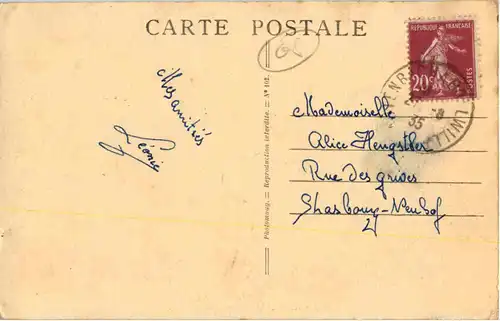 CARTE POSTALE
RÉPUBLIQUE FRANÇAISE
20c
POSTES
Mes amitiés
Léonie
Photomong. — Reproduction interdite. — Nº 102.
Mademoiselle
Alice Hengstler
Rue des grives
Strasbourg-Neuhof